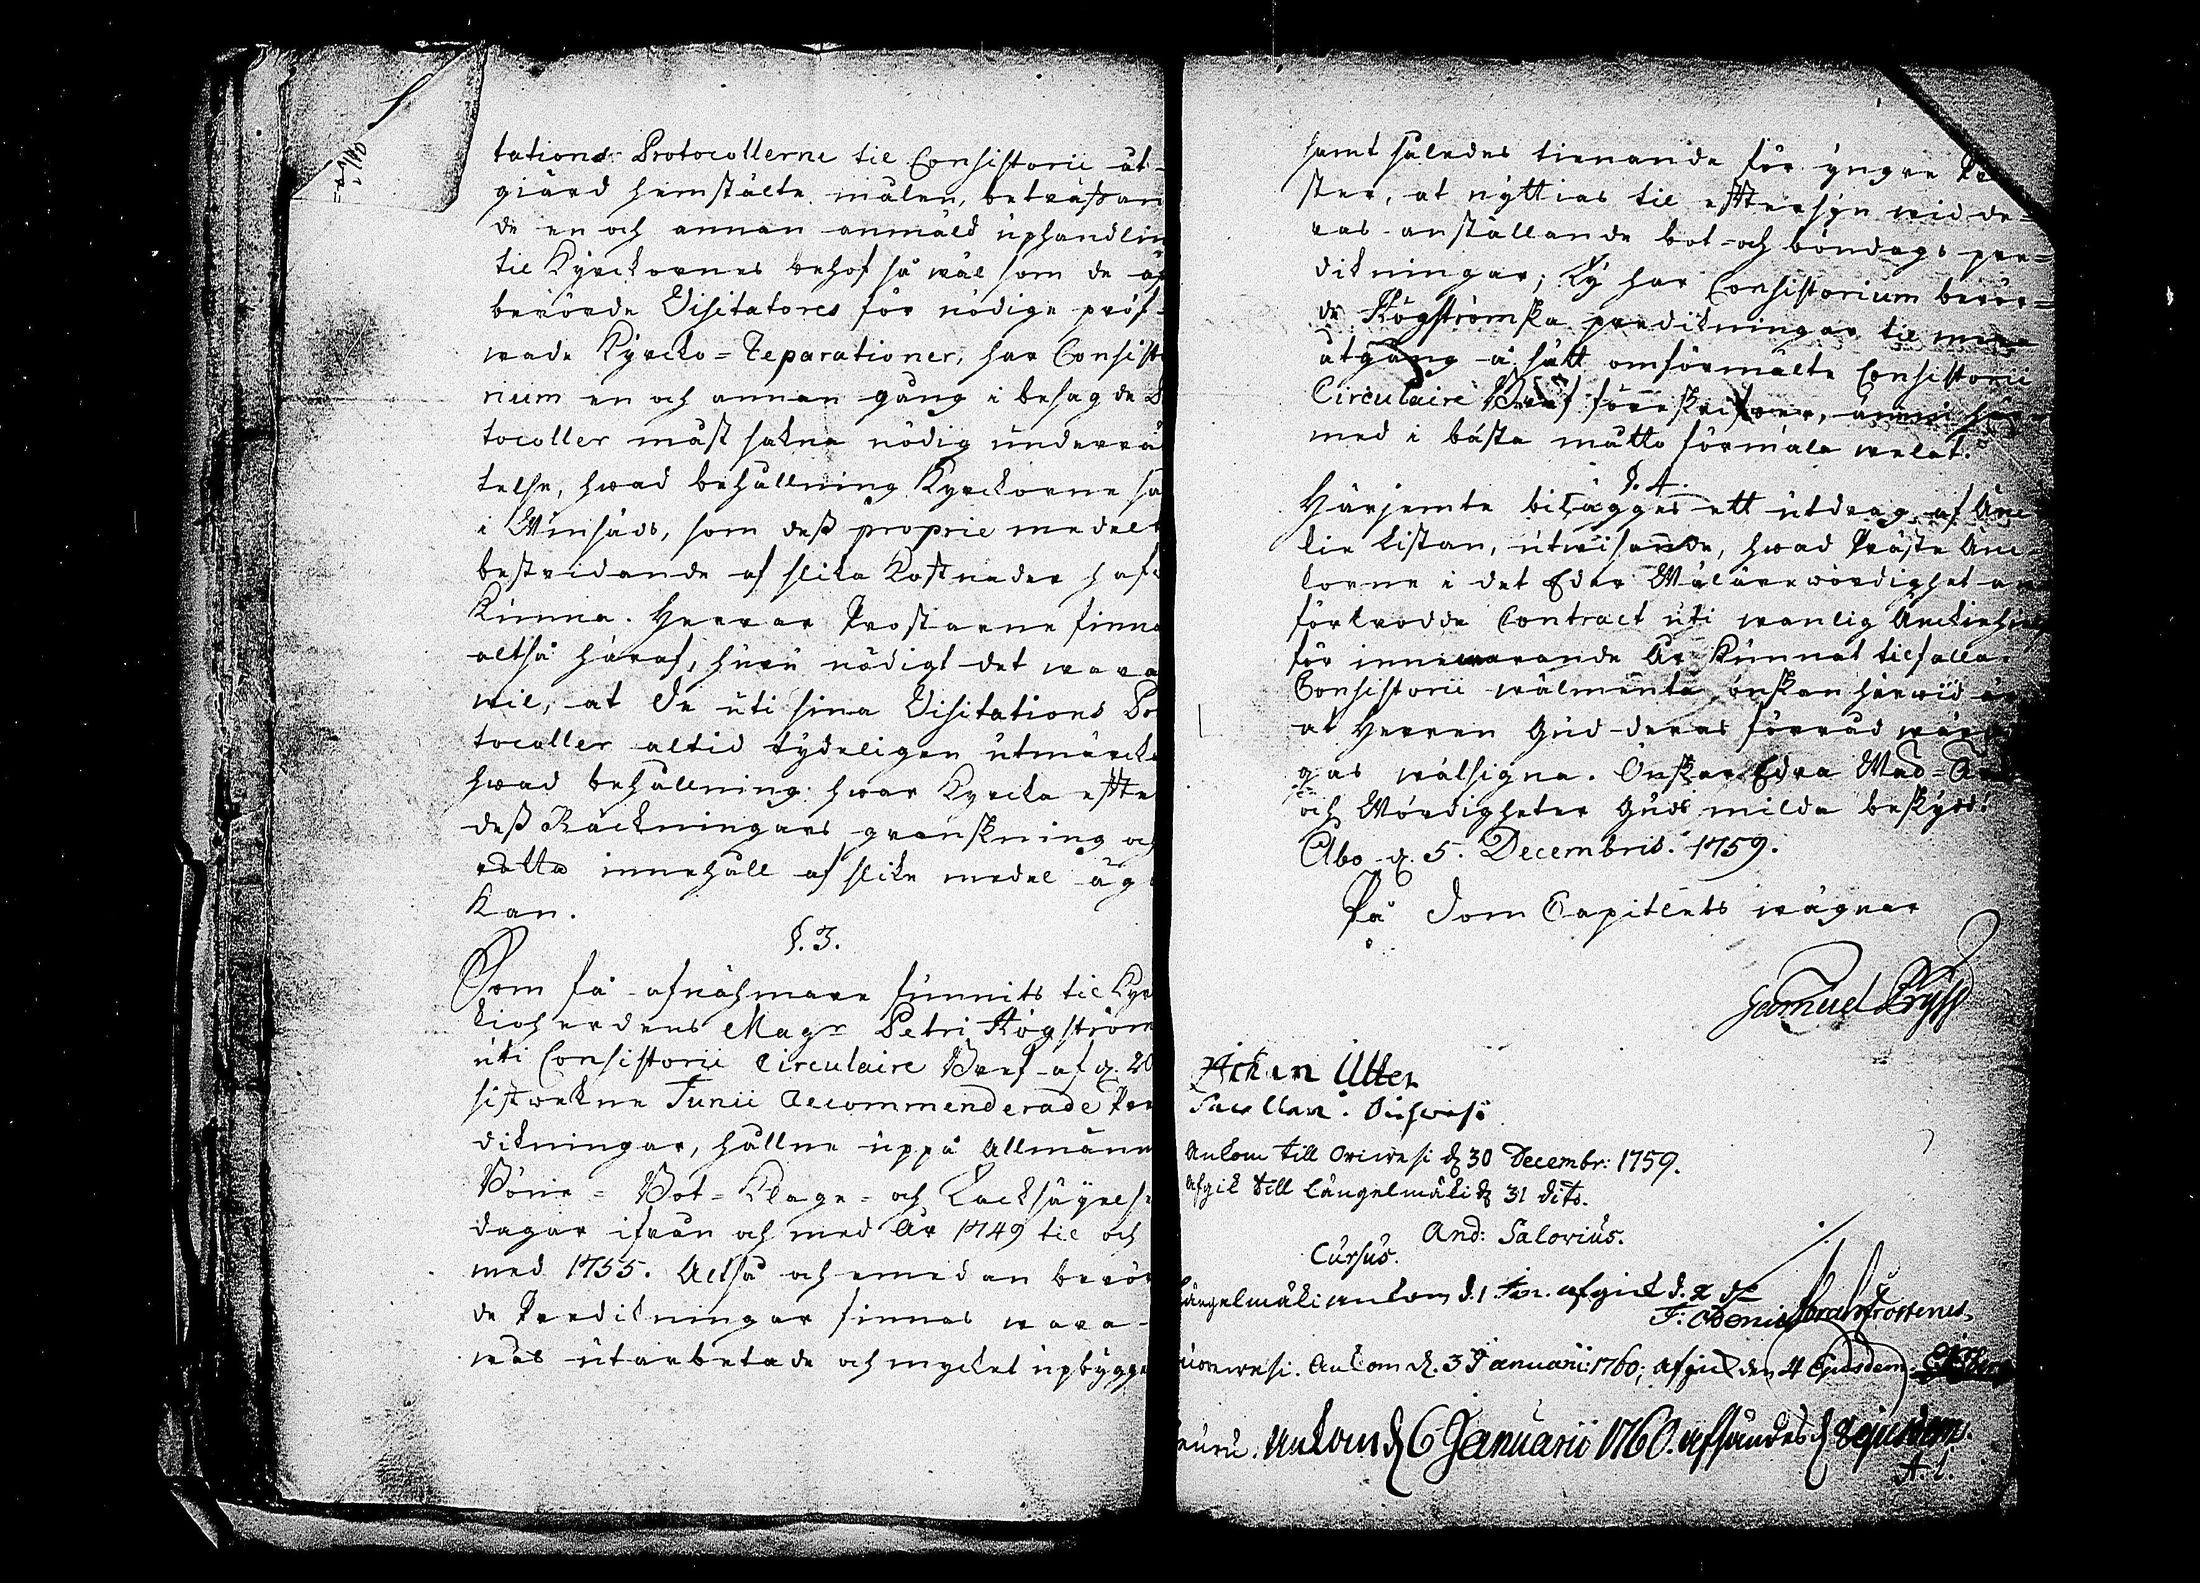 tations Protocollerne til Consistorii ut-
giärd hemstälte målen, beträffan
de en och annan anmäld uphandlin
til Kyrckornes behof så wäl som de af
berörde Visitatores för nödige pröf-
wade Kyrcko=Reparationer, har Consisto
rium en och annan gång i besagde Pro
tocoller måst sakna nödig underrät
telse, hwad behållning Kyrckorne ha
i Winsäds, som dess proprie medel
bestridande af slika Kostnader hafwa
Kunna. Herrar Prostarne finna
altså häraf, huru nödigt det wara
wil, at De uti sina Visitations Pro
tocoller altid tydeligen utmärcka
hwad behållning hwar Kyrcka effte
dess Räckningars granskning och
rätta innehåll af slike medel äga
Kan.
§. 3.
Som få afnähmare funnits til Kyr
kioherdens Magr Petri Högström
uti Consistorii Circulaire Bref af d. 20
sistwekne Junii recommenderade Pre
dikningar, hållne uppå Allmänn
Böne= Bot= Klage= och Tacksäyelse
dagar ifrån och med år 1749 til och
med 1755. Altså och emedan berör
de Predikningar finnas wara
wäl utarbetade och mycket upbygge
samt således tienande för yngre Pre
ster, at nyttias til efftersyn wid de=
ras anställande bot= och böndags pre=
dikningar; Ty har Consistorium berör=
de Högströmska predikningar til mera
utgång å sätt omförmälte Consistorii
Circulaire Bref föreskrifwer, ännu här
med i bästa måtto förmäla welat.
§. 4.
Härjemte bilägges ett utdrag af Äne
kie Listan, utwisande, hwad Präste Änc-
korne i det Eder Wälärewördighet an
förtrodde Contract uti wanlig Änckiehielp
för innewarande År Kunnat tilfalla.
Consistorii wälmenta önskan härwid är
at Herren Gud deras förråd wär
gas wälsigna. Önskar Edra Wäl=Äre
och Wördigheter Guds milda beskydd.
Åbo d. 5. Decembris. 1759.
På Dom Capitlets wägnar
Samuel Pryss
Ankom till Oriwesi d 30 Decembr: 1759.
Afgik till Längelmäki d 31 dito.
And: Salovius.
Cursus.
Längelmäki ankom d. 1 Jan. afgick d. 2 do
Ankom d. 3 Januarii 1760, afgick den 4 Ejusdem.
Keuru. Ankom d 6 Januarii 1760. afsändes d 8 ejusdem.
A. L.